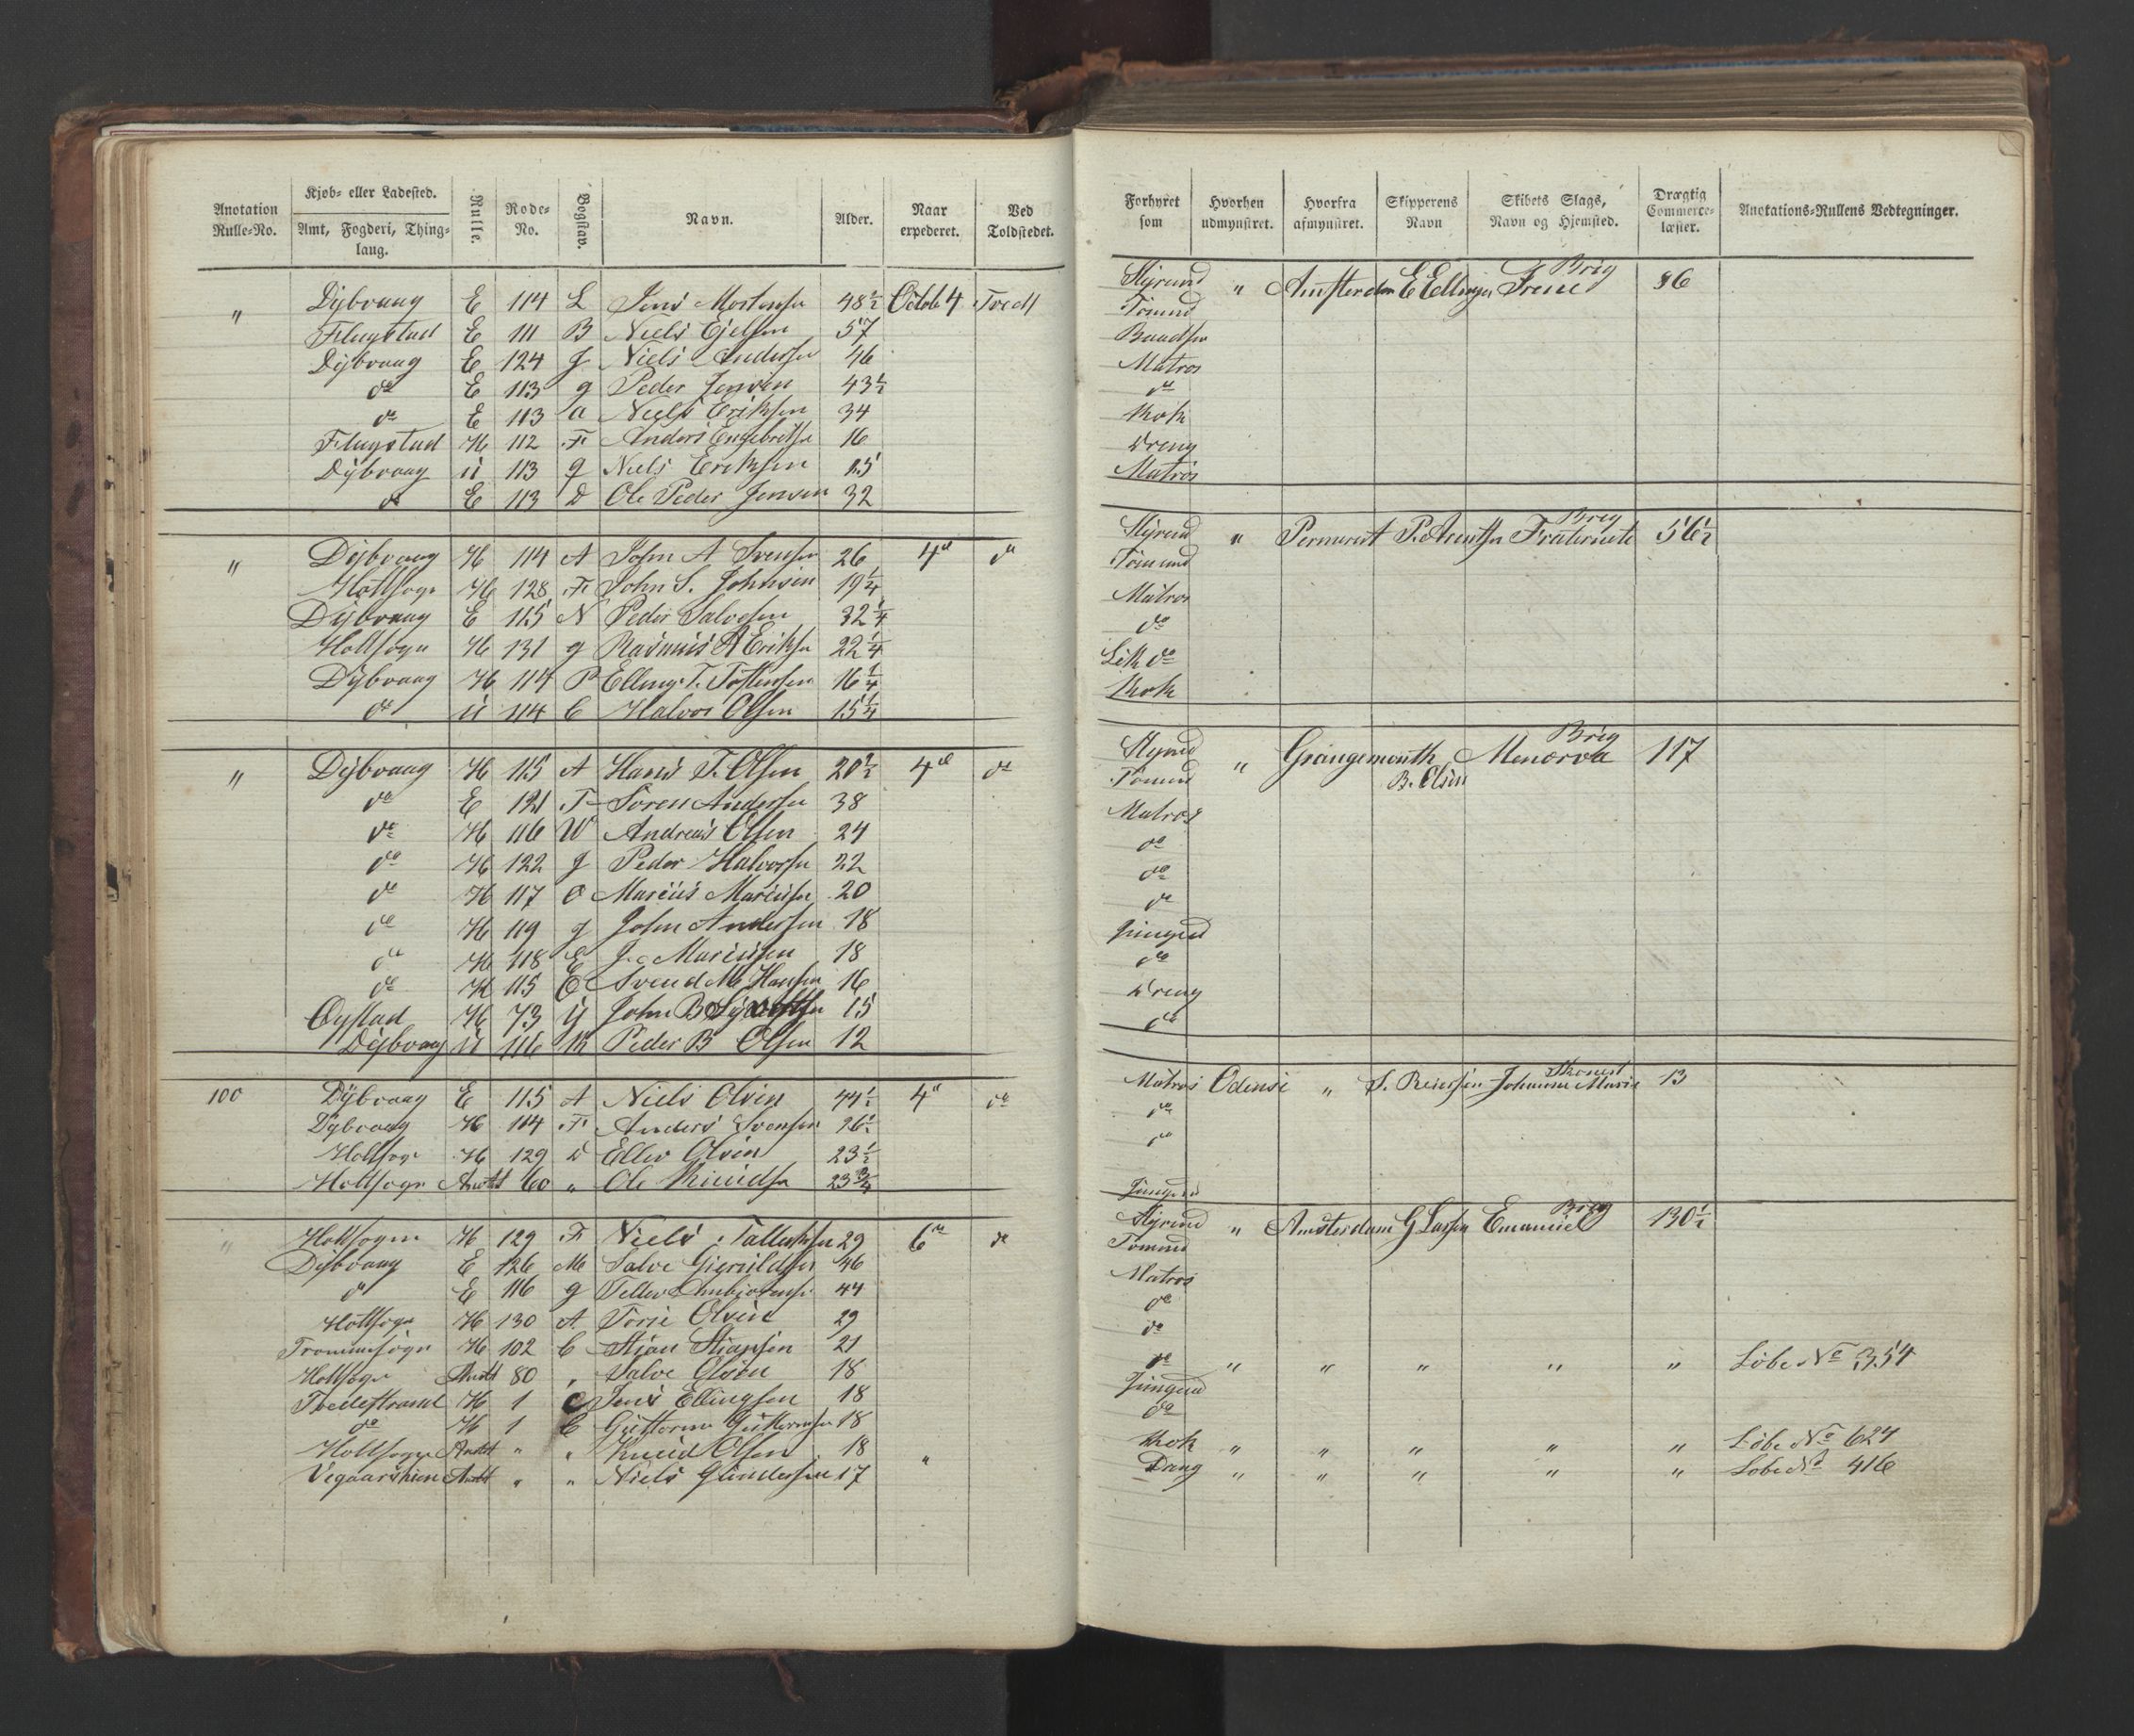 Anotation Rulle-No. | Kjøb- eller Ladested. Amt, Fogderi, Thinglaug. | Rulle. | Rode-No. | Bogstav. | Navn. | Alder. | Naar expederet. | Ved Toldstedet. | Forhyret som | Hvorhen udmynstret. | Hvorfra afmynstret. | Skipperens Navn | Skibets Slags, Navn og Hjemsted. | Drægtig Commerce-læster. | Anotations-Rullens Vedtegninger.
" Dybvaag E 114 L Jens Mortensen 48½ Octob 4 Tvedt Styrmd " Amsterdam E Ellingsen Brig Irene 96
Flugstad E 111 B Niels 57 Tømmd
Dybvaag E 124 g Niels Andersen 46 Baadsm
do E 113 g Peder Jensen 43½ Matros
do E 113 a Niels Eriksen 34 do
Flugstad H 112 F Anders Engebretsen 16 Kok
Dybvaag U 113 g Niels Eriksen 15 Dreng
do E 113 D Ole Peder Jensen 32 Matros
" Dybvaag H 114 A John A Svensen 26 4de do Styrmd " P. Arentsen Brig Fraternite 56½
Holtsogn H 128 F John S. Johnsen 19¼ Tømmd
Dybvaag E 115 N Peder Salvesen 32¼ Matros
Holtsogn H 131 g Rasmus A Eriksen 22¼ do
Dybvaag H 114 P Elling T. Tostensen 16¼ Let. do
do U 114 C Halvor Olsen 15¼ Kok
" Dybvaag H 115 A Hans T. Olsen 20½ 4de do Styrmd " Grangemouth B. Olsen Brig Menerva 117
do E 121 T Søren Andersen 38 Tømmd
do H 116 W Andreas Olsen 24 Matros
do H 122 g Peder Halvorsen 22 do
do H 117 O Marius Mariusen 20 do
do H 119 g John Andersen 18 do
do H 118 E J. Mariusen 18 Jungmd
do H 115 E Svend M. Hansen 16 do
Øystad H 73 Y John B 15 Dreng
Dybvaag U 116 K Peder B Olsen 12 do
100 Dybvaag E 115 A Niels Olsen 44½ 4de do Matros Odense " S. Reiersen Skonert Johanne Marie 13
Dybvaag H 114 F Anders Svensen 26½ do
Holtsogn H 129 D Ellev Olsen 23½ do
Holtsogn Anott 60 " Ole Knudsen 23¾ Jungmd
" Holtsogn H 129 F Niels Tallaksen 29 6te do Styrmd " Amsterdam G Larsen Brig Emanuel 130½
Dybvaag E 126 M Salve 46 Tømmd
do E 116 g Tellev 44 Matros
Holtsogn H 130 A Terje Olsen 29 do
Tromøsogn H 102 C Stian Stiansen 21 do
Holtsogn Anott 80 " Salve Olsen 18 do " " " " " Løbe No 354
Tvedestrand H 1 C Jens Ellingsen 18 Jungmd
do H 1 C Guttorm Guttormsen 18 do
Holtsogn Anott " " Knud Olsen 18 Kok " " " " " Løbe No 624
Vegaarshien Anott " " Niels Gundersen 17 " Dreng " " " " " Løbe No 416